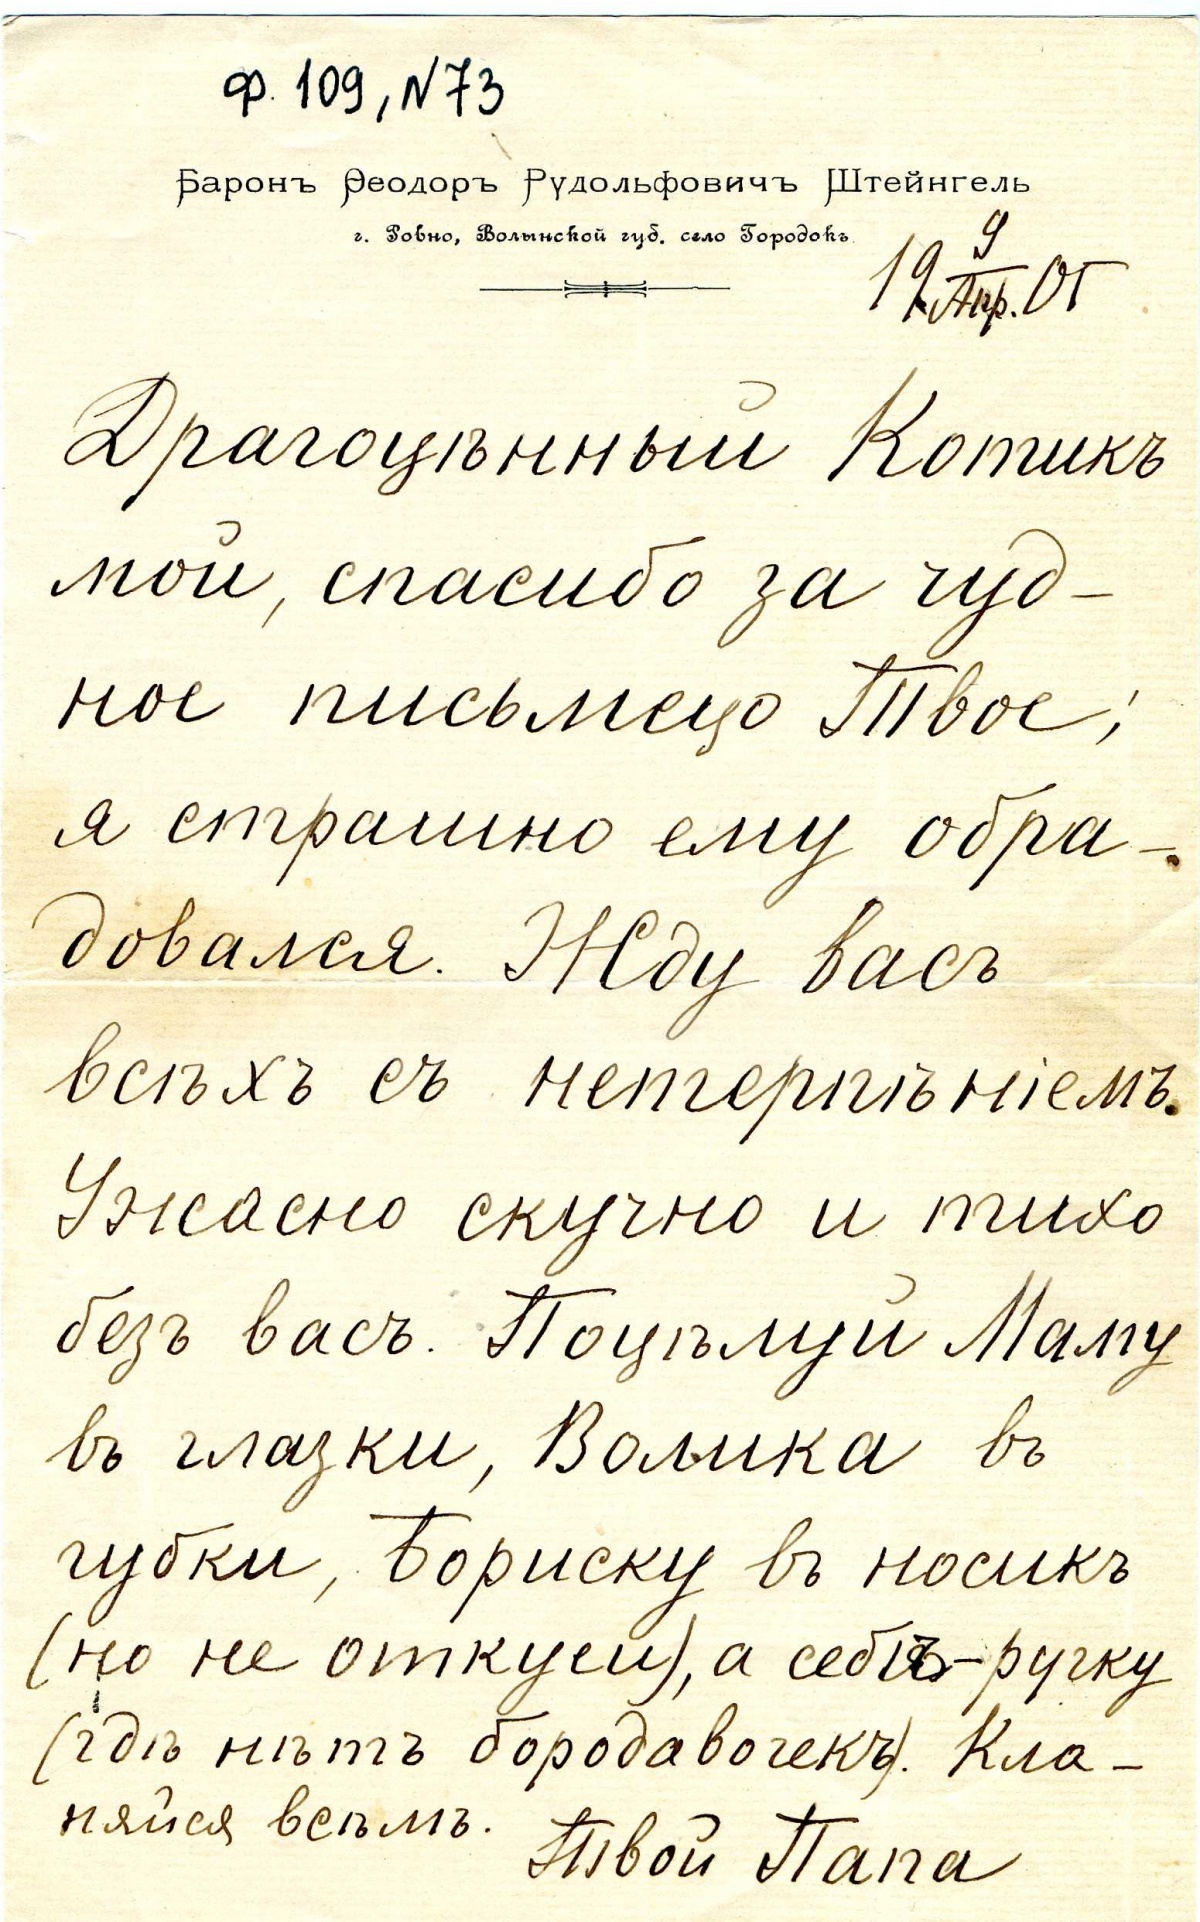 Ф. 109, N 73
Баронъ Ѳеодоръ Рудольфовичъ Штейнгель
г. Ровно, Волынской губ. село Городокъ
19 9/Апр. 05
Драгоцѣнный Котикъ
мой, спасибо за чуд-
ное письмецо Твое;
я страшно ему обра-
довался. Жду васъ
всѣхъ съ нетерпѣніемъ.
Ужасно скучно и тихо
безъ васъ. Поцѣлуй Маму
въ глазки, Волика въ
губки, Бориску въ носикъ
(но не откуси), а себѣ-ручку
(гдѣ нѣтъ бородавочекъ). Кла-
няйся всѣмъ.
Твой Папа